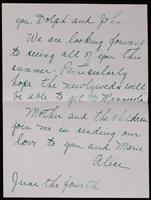 you, Dolph and John.
We are looking forward
to seeing all of you this
summer. Particularly
hope the newlyweds will
be able to get to
Mother and the children
join me in sending our
love to you and Marie
Alice
June the fourth